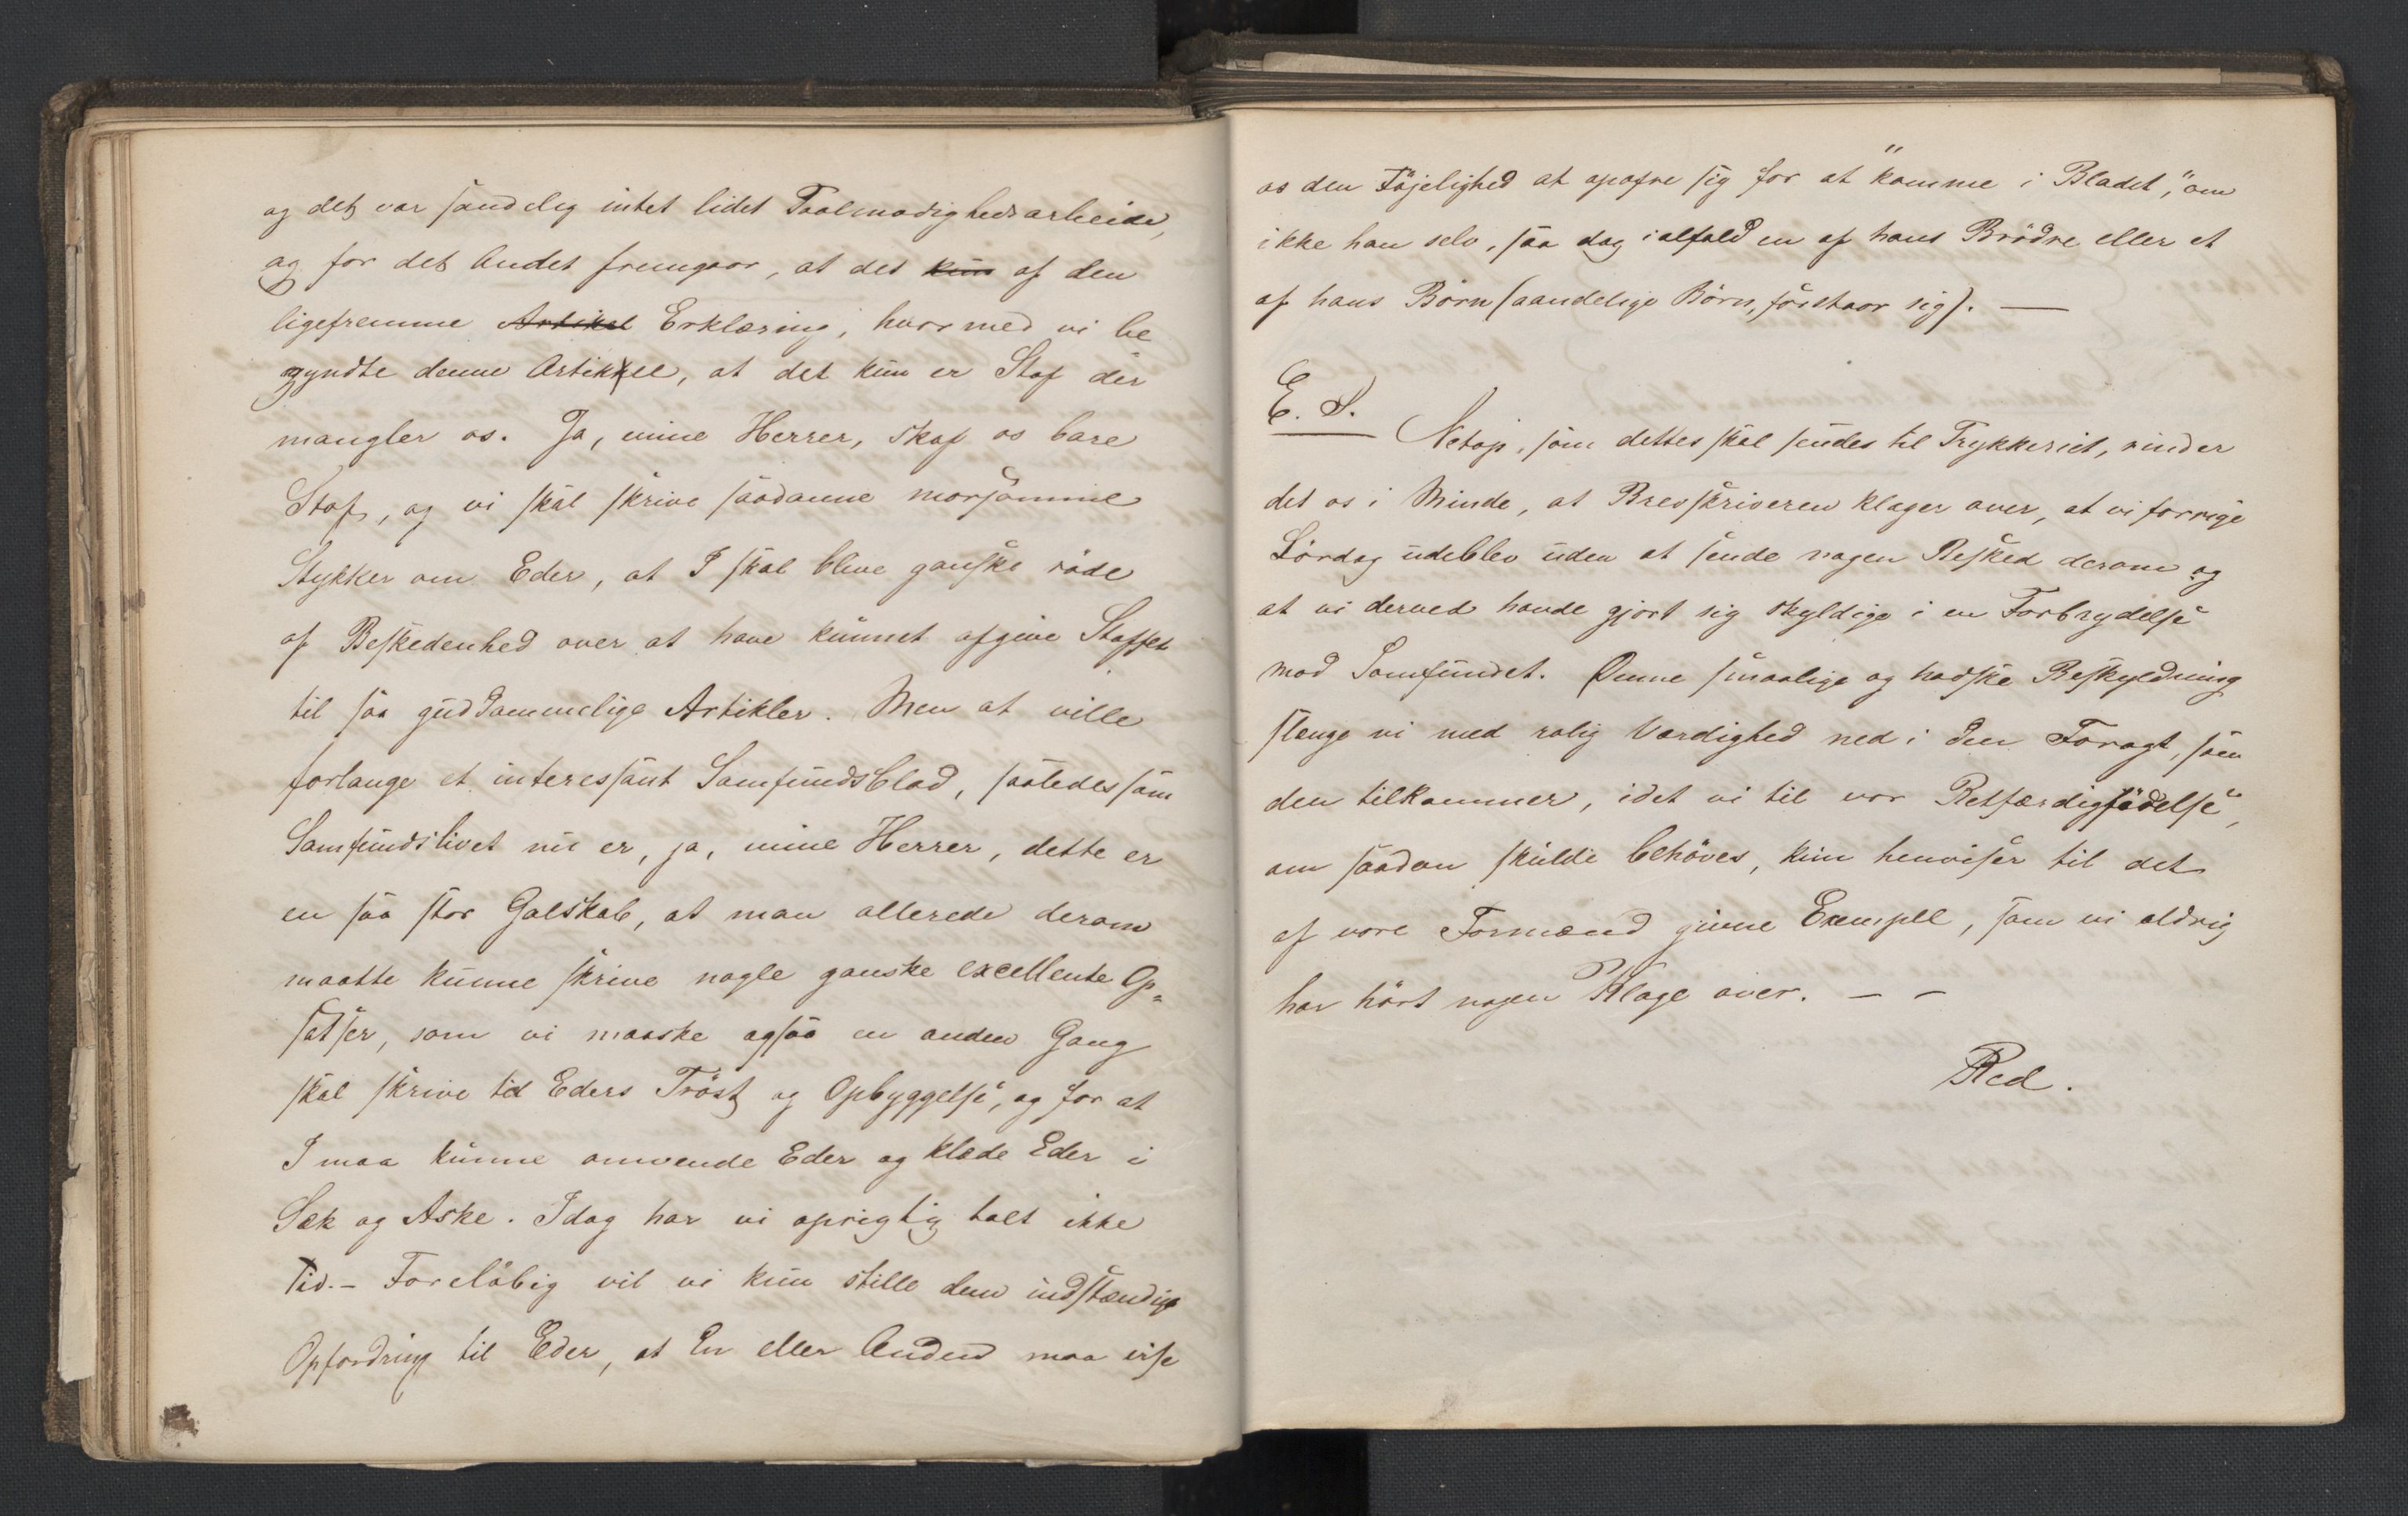 og det var sandelig intet lidet Taalmodighedsarbeide,
og for det Andet fremgaar, at det kun af den
ligefremme Artikel Erklæring, hvormed vi be
gyndte denne Artikkel, at det kun er Stof der
mangler os. Ja, mine Herrer, skaf os bare
Stof, og vi skal skrive saadanne morsomme
Stykker om Eder, at I skal blive ganske röde
af Beskedenhed over at have kunnet afgive Stoffet
til saa guddommelige Artikler. Men at ville
forlange et interessant Samfundsblad, saaledes som
Samfundslivet nu er, ja, mine Herrer, dette er
en saa stor Galskab, at man allerede derom
maatte kunne skrive nogle ganske excellente Op=
satser, som vi maaske ogsaa en anden Gang
skal skrive til Eders Tröst og Opbyggelse, og for at
I maa kunne omvende Eder og klæde Eder i
Sæk og Aske. Idag har vi oprigtig talt ikke
Tid. – Foreløbig vil vi kun stille den indstændige
Opfordring til Eder, at En eller Anden maa vise
os den Föjelighed at opofre sig for at "komme i Bladet," om
ikke han selv, saa dog ialfald en af hans Brödre eller et
af hans Börn (aandelige Börn, forstaar sig). —
E. S.
Netop, som dette skal sendes til Trykkeriet, rinder
det os i Minde, at Brevskriveren klager over, at vi forrige
Lördag udeblev uden at sende nogen Besked derom og
at vi derved havde gjort sig skyldige i en Forbrydelse
mod Samfundet. Denne smaalige og hadske Beskyldning
slænge vi med rolig Værdighed ned i den Foragt, som
den tilkommer, idet vi til vor Retfærdiggjödelse,
om saadan skulde behöves, kun henviser til det
af vore Formænd givne Exempel, som vi aldrig
har hört nogen Klage over. – –
Red.